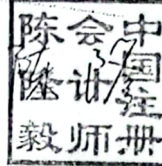 中国注册
会计师
陈陆毅